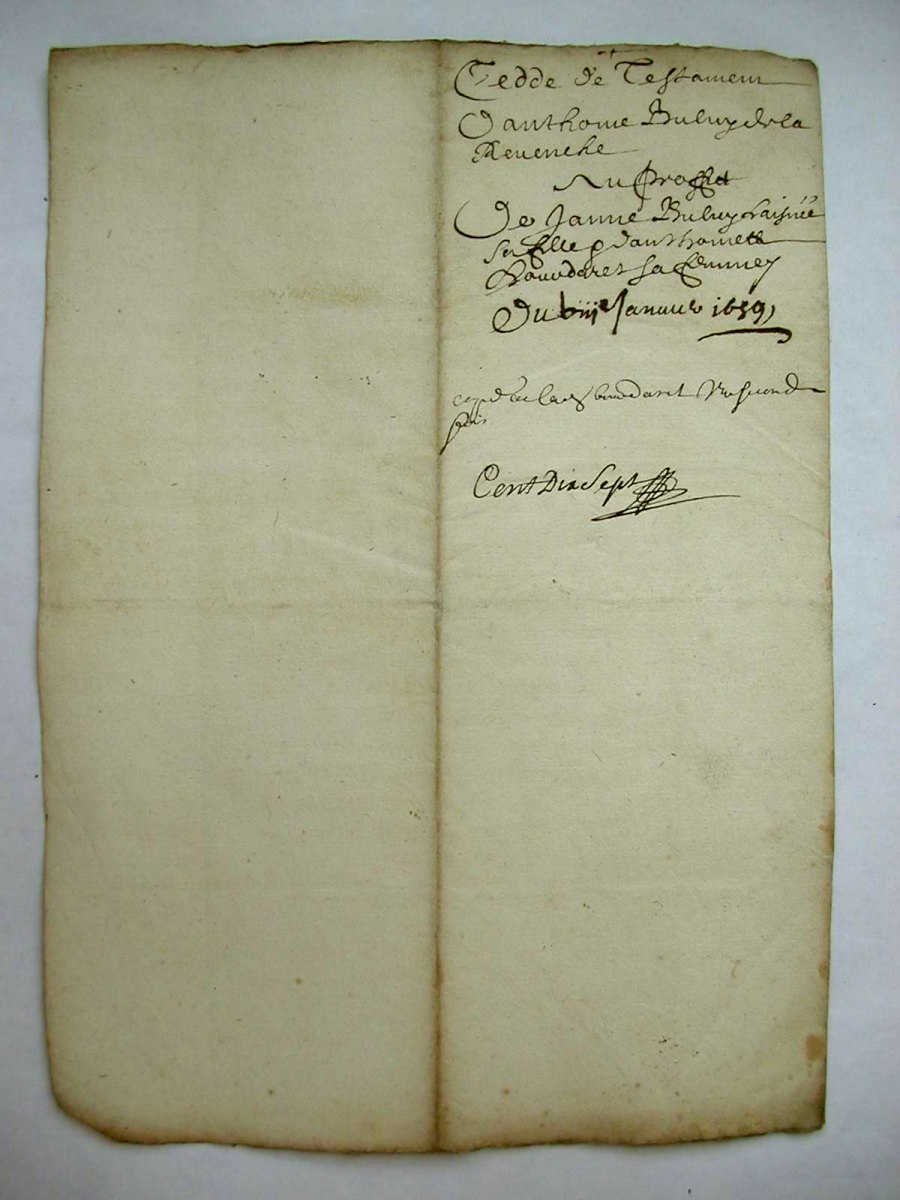 Cedde de Testament
D'anthome Buluy de la
Revenche
Au proffit
De Janne Buluy l'aisnée
sa fille & d'anthomette
Bouvdaret sa femme
Du biiie Januier 1659
bouvdaret
Cent Dix Sept